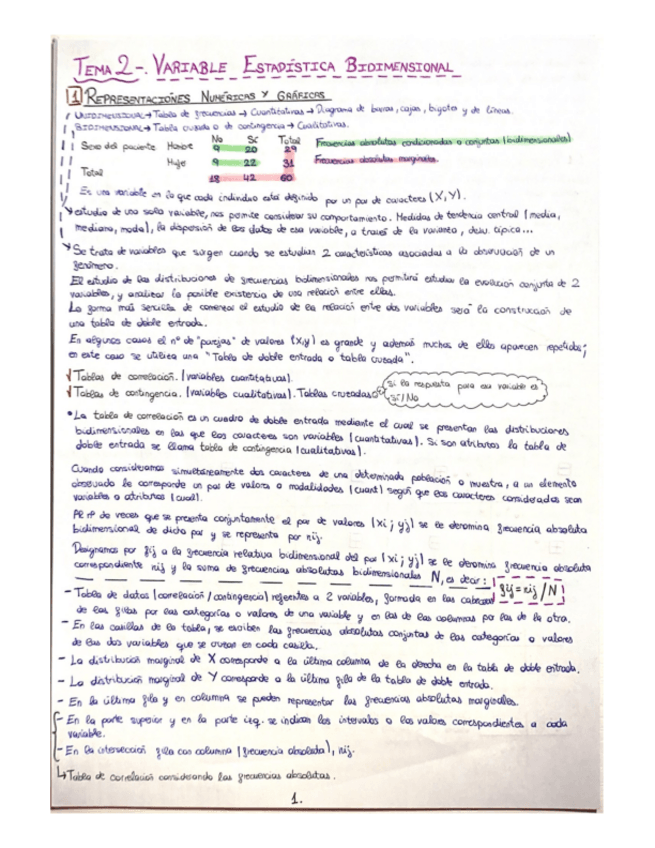 TEMA 2-. VARIABLE ESTADÍSTICA BIDIMENSIONAL
1 REPRESENTACIONES NUMÉRICAS Y GRÁFICAS
UNIDIMENSIONAL → Tabla de frecuencias → Cuantitativas → Diagrama de barras, cajas, bigotes y de líneas.
BIDIMENSIONAL → Tabla cruzada o de contingencia → Cualitativas.
No Sí Total
Sexo del paciente Hombre 9 20 29 Frecuencias absolutas condicionadas o conjuntas (bidimensionales)
Mujer 9 22 31 Frecuencias absolutas marginales.
Total 18 42 60
Es una variable en la que cada individuo está definido por un par de caracteres (X,Y).
estudio de una sola variable, nos permite considerar su comportamiento. Medidas de tendencia central (media,
mediana, moda), la dispersión de los datos de esa variable, a través de la varianta, desv. típica...
Se trata de variables que surgen cuando se estudian 2 características asociadas a la observación de un
fenómeno.
El estudio de las distribuciones de frecuencias bidimensionales nos permitirá estudiar la evolución conjunta de 2
variables, y analizar la posible existencia de una relación entre ellas.
La forma más sencilla de comenzar el estudio de la relación entre dos variables será la construcción de
una tabla de doble entrada.
En algunos casos el nº de "parejas" de valores (X,Y) es grande y además muchas de ellas aparecen repetidas;
en este caso se utiliza una "Tabla de doble entrada o tabla cruzada".
√ Tablas de correlación. (variables cuantitativas).
√ Tablas de contingencia. (variables cualitativas). Tablas cruzadas
Si la respuesta para esa variable es
Sí/No
• La tabla de correlación es un cuadro de doble entrada mediante el cual se presentan las distribuciones
bidimensionales en las que los caracteres son variables (cuantitativas). Si son atributos la tabla de
doble entrada se llama tabla de contingencia (cualitativas).
Cuando consideramos simultáneamente dos caracteres de una determinada población o muestra, a un elemento
observado le corresponde un par de valores o modalidades (cuant) según que los caracteres considerados sean
variables o atributos (cual).
Al nº de veces que se presenta conjuntamente el par de valores (xi; yj) se le denomina frecuencia absoluta
bidimensional de dicho par y se representa por nij.
Designamos por fij a la frecuencia relativa bidimensional del par (xi; yj) se le denomina frecuencia absoluta
correspondiente nij y la suma de frecuencias absolutas bidimensionales N, es decir: fij = nij/N
- Tabla de datos (correlación/contingencia) referentes a 2 variables, formada en las cabeceras
de las filas por las categorías o valores de una variable y en las de las columnas por las de la otra.
- En las casillas de la tabla, se escriben las frecuencias absolutas conjuntas de las categorías o valores
de las dos variables que se cruzan en cada casilla.
- La distribución marginal de X corresponde a la última columna de la derecha en la tabla de doble entrada.
- La distribución marginal de Y corresponde a la última fila de la tabla de doble entrada.
- En la última fila y en columna se pueden representar las frecuencias absolutas marginales.
- En la parte superior y en la parte izq. se indican los intervalos o los valores correspondientes a cada
variable.
- En la intersección fila con columna (frecuencia absoluta), nij.
↳ Tabla de correlación considerando las frecuencias absolutas.
1.